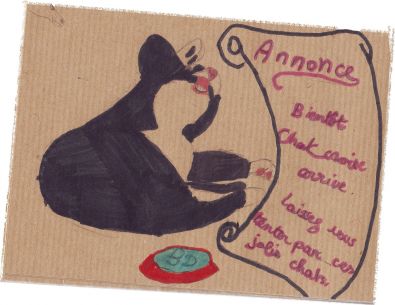 Annonce
Bientôt
Chat
arrive
Laissez vous
tenter par ces
jolis chats
BD